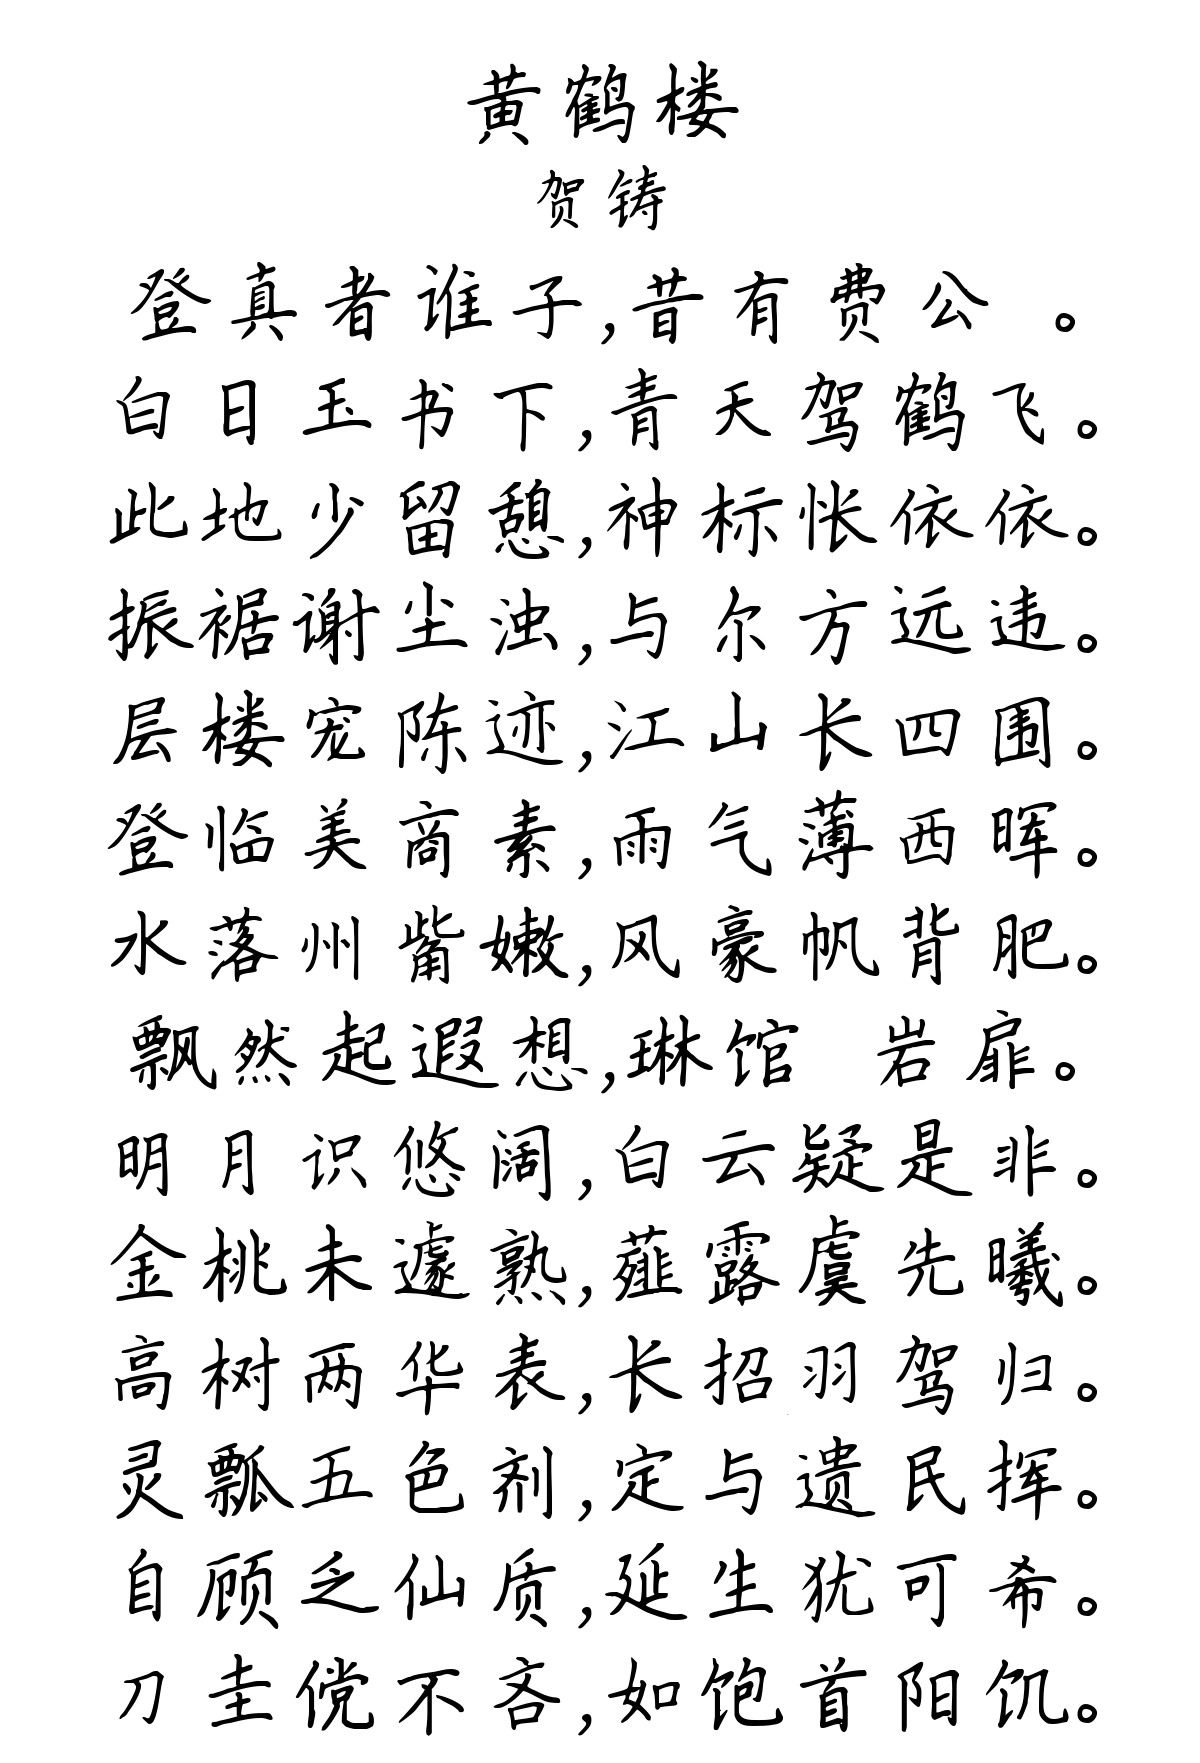 黄鹤楼
贺铸
登真者谁子,昔有费公 。
白日玉书下,青天驾鹤飞。
此地少留憩,神标怅依依。
振裾谢尘浊,与尔方远违。
层楼宠陈迹,江山长四围。
登临美商素,雨气薄西晖。
水落州觜嫩,风豪帆背肥。
飘然起遐想,琳馆 岩扉。
明月识悠阔,白云疑是非。
金桃未遽熟,薤露虞先曦。
高树两华表,长招羽驾归。
灵瓢五色剂,定与遗民挥。
自顾乏仙质,延生犹可希。
刀圭傥不吝,如饱首阳饥。